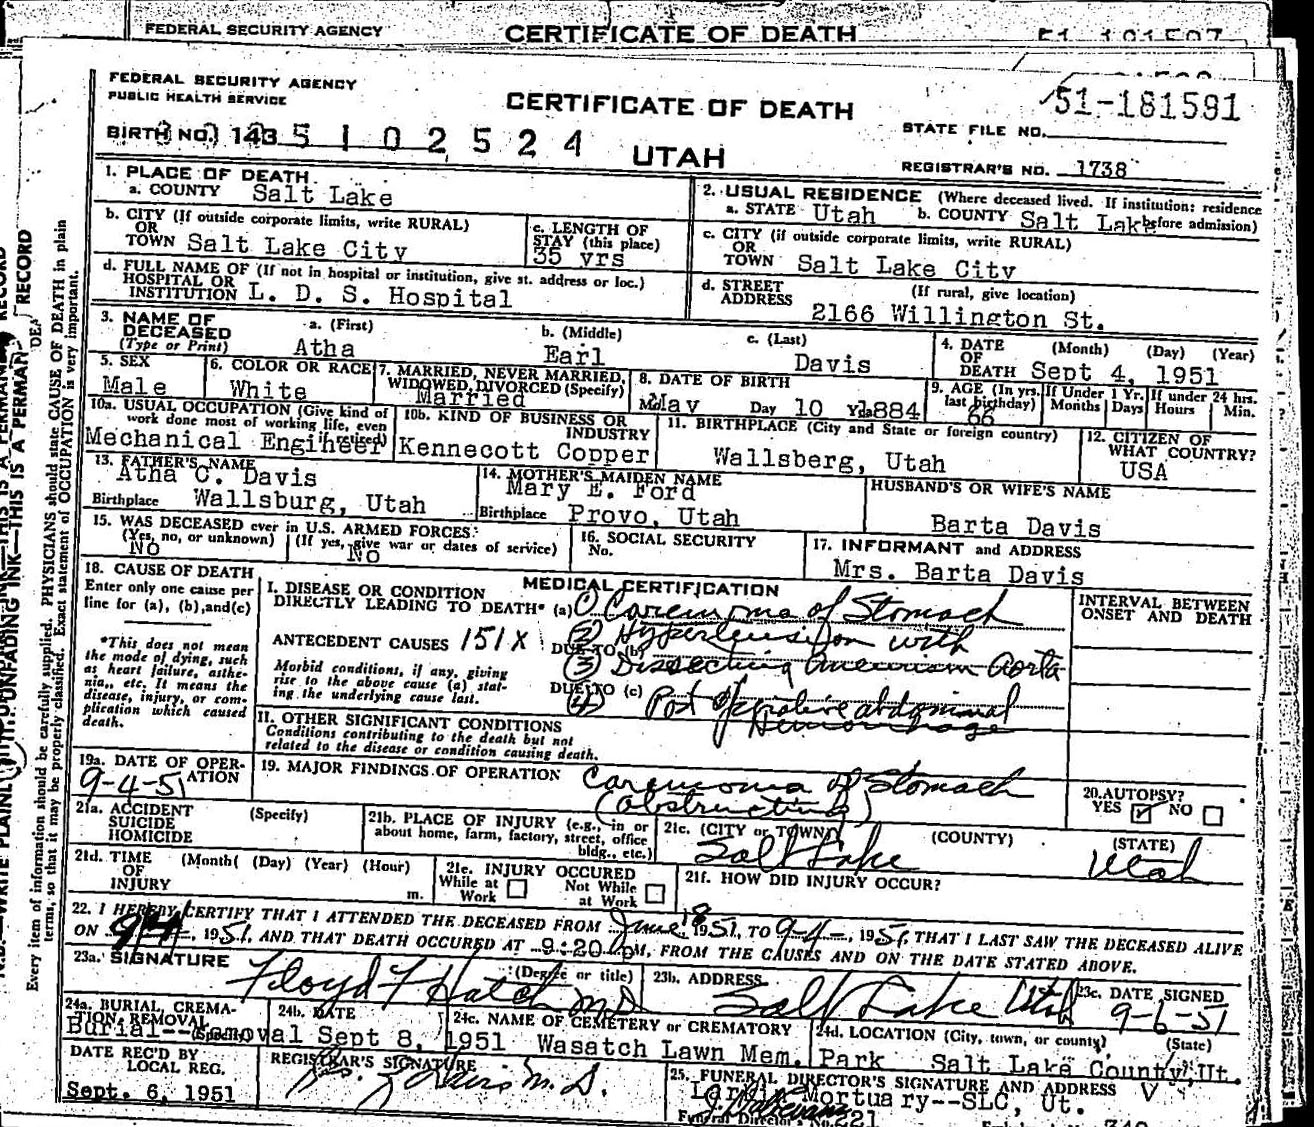 FEDERAL SECURITY AGENCY CERTIFICATE OF DEATH
FEDERAL SECURITY AGENCY
PUBLIC HEALTH SERVICE
CERTIFICATE OF DEATH
51-181591
STATE FILE NO.
BIRTH NO. 143 5 1 0 2 5 2 4
UTAH
REGISTRAR'S NO. 1738
1. PLACE OF DEATH
a. COUNTY Salt Lake
2. USUAL RESIDENCE (Where deceased lived. If institution: residence before admission)
a. STATE Utah b. COUNTY Salt Lake
b. CITY (If outside corporate limits, write RURAL)
OR
TOWN Salt Lake City
c. LENGTH OF
STAY (this place)
35 yrs
c. CITY (if outside corporate limits, write RURAL)
OR
TOWN Salt Lake City
d. FULL NAME OF (If not in hospital or institution, give st. address or loc.)
HOSPITAL OR
INSTITUTION L. D. S. Hospital
d. STREET
ADDRESS
(If rural, give location)
2166 Willington St.
3. NAME OF
DECEASED
(Type or Print)
a. (First)
Atha
b. (Middle)
Earl
c. (Last)
Davis
4. DATE
OF
DEATH
(Month) (Day) (Year)
Sept 4, 1951
5. SEX
Male
6. COLOR OR RACE
White
7. MARRIED, NEVER MARRIED,
WIDOWED, DIVORCED (Specify)
Married
8. DATE OF BIRTH
Mo. May Day 10 Yr. 1884
9. AGE (In yrs.
last birthday)
66
If Under 1 Yr.
Months Days
If under 24 hrs.
Hours Min.
10a. USUAL OCCUPATION (Give kind of
work done most of working life, even
if retired)
Mechanical Engineer
10b. KIND OF BUSINESS OR
INDUSTRY
Kennecott Copper
11. BIRTHPLACE (City and State or foreign country)
Wallsberg, Utah
12. CITIZEN OF
WHAT COUNTRY?
USA
13. FATHER'S NAME
Atha C. Davis
Birthplace Wallsburg, Utah
14. MOTHER'S MAIDEN NAME
Mary E. Ford
Birthplace Provo, Utah
HUSBAND'S OR WIFE'S NAME
Barta Davis
15. WAS DECEASED ever in U.S. ARMED FORCES?
(Yes, no, or unknown) (If yes, give war or dates of service)
No No
16. SOCIAL SECURITY
No.
17. INFORMANT and ADDRESS
Mrs. Barta Davis
18. CAUSE OF DEATH
Enter only one cause per
line for (a), (b), and (c)
*This does not mean
the mode of dying, such
as heart failure, asthe-
nia, etc. It means the
disease, injury, or com-
plication which caused
death.
MEDICAL CERTIFICATION
I. DISEASE OR CONDITION
DIRECTLY LEADING TO DEATH* (a) (1) Carcinoma of Stomach
ANTECEDENT CAUSES 151X (2) Hypertension with
DUE TO (b)
(3) Dissecting Aneurism Aorta
Morbid conditions, if any, giving
rise to the above cause (a) stat-
ing the underlying cause last.
DUE TO (c)
(4) Post Operative abdominal
Hemorrhage
INTERVAL BETWEEN
ONSET AND DEATH
II. OTHER SIGNIFICANT CONDITIONS
Conditions contributing to the death but not
related to the disease or condition causing death.
19a. DATE OF OPER-
ATION
9-4-51
19. MAJOR FINDINGS OF OPERATION Carcinoma of Stomach
(Obstructing)
20. AUTOPSY?
YES NO
21a. ACCIDENT
SUICIDE
HOMICIDE
(Specify)
21b. PLACE OF INJURY (e.g., in or
about home, farm, factory, street, office
bldg., etc.)
21c. (CITY or TOWN) (COUNTY) (STATE)
Salt Lake Utah
21d. TIME
OF
INJURY
(Month( (Day) (Year) (Hour)
m.
21e. INJURY OCCURED
While at
Work
Not While
at Work
21f. HOW DID INJURY OCCUR?
22. I HEREBY CERTIFY THAT I ATTENDED THE DECEASED FROM June 18, 1951, TO 9-4-, 1951, THAT I LAST SAW THE DECEASED ALIVE
ON 9/4, 1951, AND THAT DEATH OCCURED AT 9:20 pM, FROM THE CAUSES AND ON THE DATE STATED ABOVE.
23a. SIGNATURE (Degree or title)
Floyd F Hatch MD
23b. ADDRESS
Salt Lake Utah
23c. DATE SIGNED
9-6-51
24a. BURIAL, CREMA-
TION, REMOVAL
(Specify)
Burial--Removal
24b. DATE
Sept 8, 1951
24c. NAME OF CEMETERY or CREMATORY
Wasatch Lawn Mem. Park
24d. LOCATION (City, town, or county) (State)
Salt Lake County, Ut.
DATE REC'D BY
LOCAL REG.
Sept. 6, 1951
REGISTRAR'S SIGNATURE
M. D.
25. FUNERAL DIRECTOR'S SIGNATURE AND ADDRESS
Mortuary--SLC, Ut.
Funeral Director's No. 221
Every item of information should be carefully supplied. PHYSICIANS should state CAUSE OF DEATH in plain
terms, so that it may be properly classified. Exact statement of OCCUPATION is very important.
THIS IS A PERMANENT RECORD